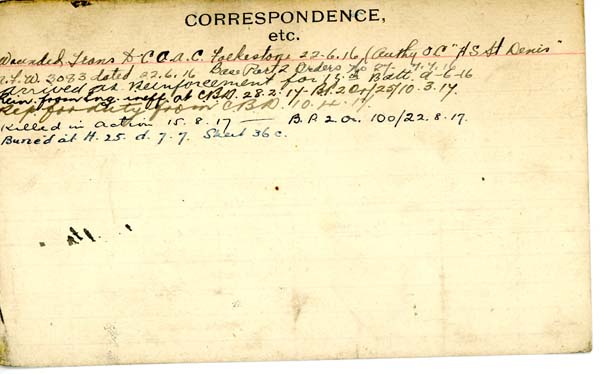 CORRESPONDENCE,
etc.
Wounded Trans to C.C.A.C. Folkestone 22-6.16 (Authy O.C. "H.S. St Denis"
A.F.W. 3083 dated 22.6.16 Base Part 2 Orders No 27 7.7.16
arrived as Reinforcement for Batt. 9-6-16
from Eng. ineff. at C.B.D. 28.2.17 Bt. 2 Or/25/10.3.17.
Rep. for duty from C.B.D. 10.4.17.
Killed in action 15.8.17 — B.P.2 Or. 100/22.8.17.
Buried at H. 25. d. 7.7. Sheet 36c.